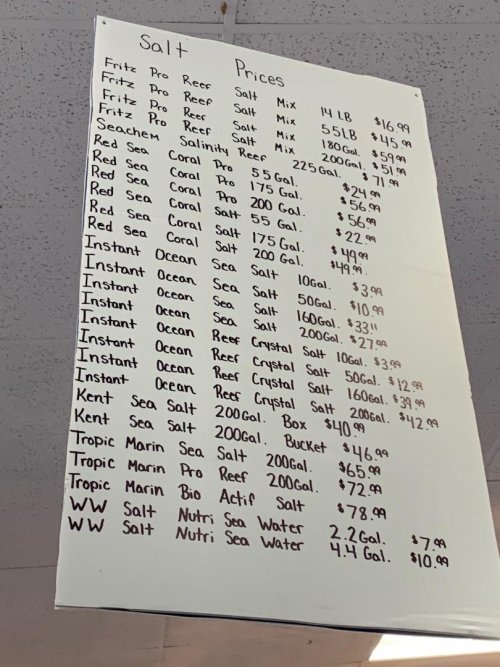 Salt Prices
Fritz Pro Reef Salt Mix 14 LB $16.99
Fritz Pro Reef Salt Mix 55LB $45.99
Fritz Pro Reef Salt Mix 180Gal. $59.99
Fritz Pro Reef Salt Mix 200Gal. $51.99
Seachem Salinity Reef 225Gal. $71.99
Red Sea Coral Pro 55Gal. $24.99
Red Sea Coral Pro 175 Gal. $56.99
Red Sea Coral Pro 200 Gal. $56.99
Red Sea Coral Salt 55 Gal. $22.99
Red Sea Coral Salt 175Gal. $49.99
Red Sea Coral Salt 200 Gal. $49.99.
Instant Ocean Sea Salt 10Gal. $3.99
Instant Ocean Sea Salt 50Gal. $10.99
Instant Ocean Sea Salt 160Gal. $33.11
Instant Ocean Sea Salt 200Gal. $27.99
Instant Ocean Reef Crystal Salt 10Gal. $3.99
Instant Ocean Reef Crystal Salt 50Gal. $12.99
Instant Ocean Reef Crystal Salt 160Gal. $39.99
Instant Ocean Reef Crystal Salt 200Gal. $42.99
Kent Sea Salt 200Gal. Box $40.99
Kent Sea Salt 200Gal. Bucket $46.99
Tropic Marin Sea Salt 200Gal. $65.99
Tropic Marin Pro Reef 200Gal. $72.99
Tropic Marin Bio Actif Salt $78.99
WW Salt Nutri Sea Water 2.2Gal. $7.99
WW Salt Nutri Sea Water 4.4 Gal. $10.99